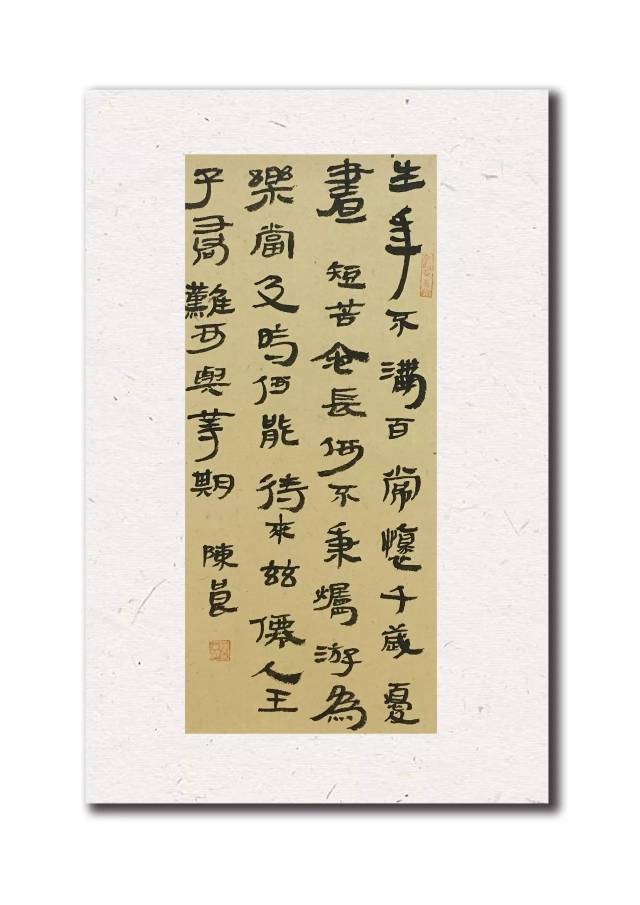 生年不滿百常懷千歲憂
晝短苦夜長何不秉燭游為
樂當及時何能待來茲僊人王
子喬難可與等期
陳